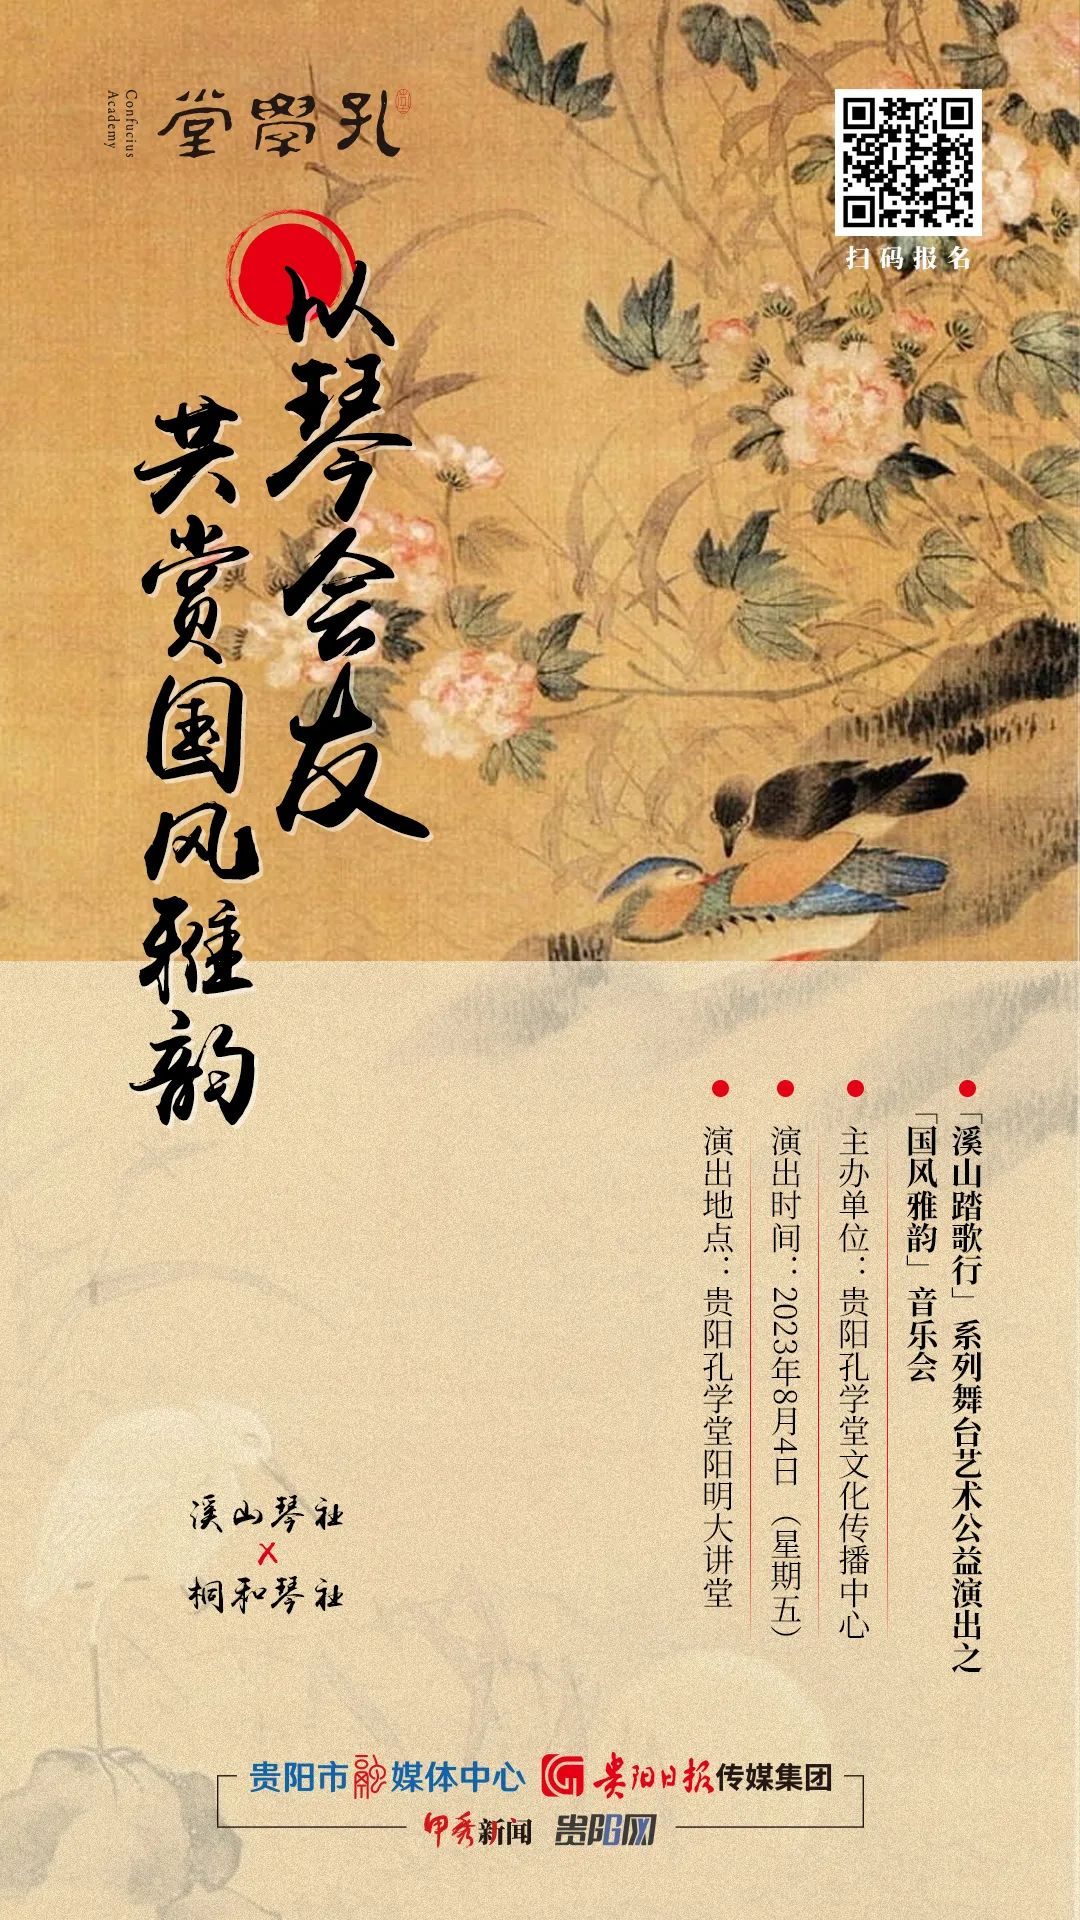 孔學堂
Confucius
Academy
扫码报名
以琴会友
共赏国风雅韵
「溪山踏歌行」系列舞台艺术公益演出之
「国风雅韵」音乐会
主办单位：贵阳孔学堂文化传播中心
演出时间：2023年8月4日（星期五）
演出地点：贵阳孔学堂阳明大讲堂
溪山琴社
X
桐和琴社
贵阳市融媒体中心 贵阳日报传媒集团
甲秀新闻 贵阳网